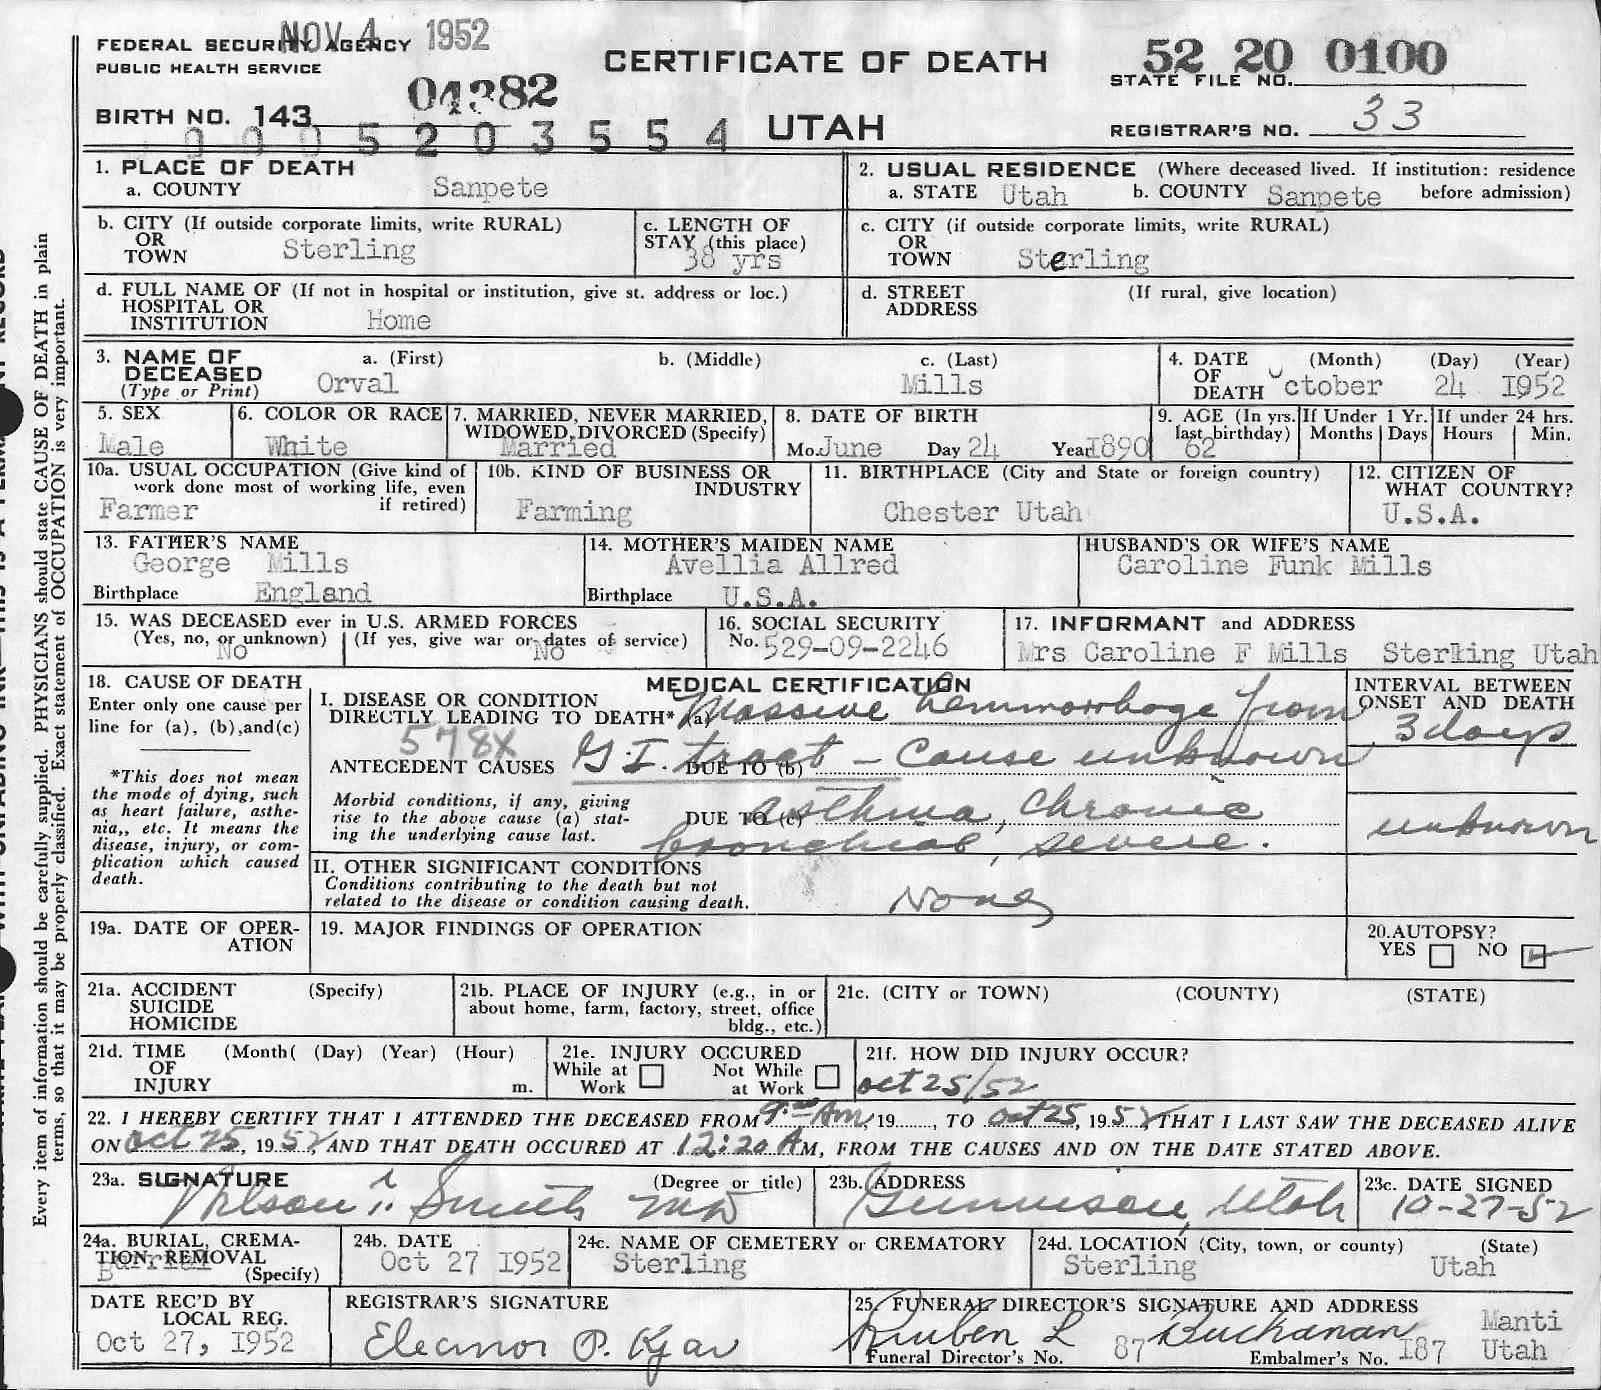 NOV 4 1952
FEDERAL SECURITY AGENCY
PUBLIC HEALTH SERVICE
CERTIFICATE OF DEATH
52 20 0100
STATE FILE NO.
04382
BIRTH NO. 143
0005203554
UTAH
REGISTRAR'S NO. 33
1. PLACE OF DEATH
a. COUNTY Sanpete
2. USUAL RESIDENCE (Where deceased lived. If institution: residence before admission)
a. STATE Utah b. COUNTY Sanpete
b. CITY (If outside corporate limits, write RURAL)
OR
TOWN Sterling
c. LENGTH OF
STAY (this place)
38 yrs
c. CITY (if outside corporate limits, write RURAL)
OR
TOWN Sterling
d. FULL NAME OF (If not in hospital or institution, give st. address or loc.)
HOSPITAL OR
INSTITUTION Home
d. STREET (If rural, give location)
ADDRESS
3. NAME OF DECEASED (Type or Print)
a. (First) b. (Middle) c. (Last)
Orval Mills
4. DATE OF DEATH (Month) (Day) (Year)
October 24 1952
5. SEX
Male
6. COLOR OR RACE
White
7. MARRIED, NEVER MARRIED,
WIDOWED, DIVORCED (Specify)
Married
8. DATE OF BIRTH
Mo. June Day 24 Year 1890
9. AGE (In yrs. last birthday)
62
If Under 1 Yr.
Months Days
If under 24 hrs.
Hours Min.
10a. USUAL OCCUPATION (Give kind of
work done most of working life, even
if retired)
Farmer
10b. KIND OF BUSINESS OR
INDUSTRY
Farming
11. BIRTHPLACE (City and State or foreign country)
Chester Utah
12. CITIZEN OF
WHAT COUNTRY?
U.S.A.
13. FATHER'S NAME
George Mills
Birthplace England
14. MOTHER'S MAIDEN NAME
Avellia Allred
Birthplace U.S.A.
HUSBAND'S OR WIFE'S NAME
Caroline Funk Mills
15. WAS DECEASED ever in U.S. ARMED FORCES
(Yes, no, or unknown) (If yes, give war or dates of service)
No No
16. SOCIAL SECURITY
No. 529-09-2246
17. INFORMANT and ADDRESS
Mrs Caroline F Mills Sterling Utah
18. CAUSE OF DEATH
Enter only one cause per
line for (a), (b), and (c)
*This does not mean
the mode of dying, such
as heart failure, asthe-
nia,, etc. It means the
disease, injury, or com-
plication which caused
death.
MEDICAL CERTIFICATION
I. DISEASE OR CONDITION
DIRECTLY LEADING TO DEATH* (a) Massive hemmorrhage from
578X
ANTECEDENT CAUSES DUE TO (b) G.I. tract - Cause unknown
Morbid conditions, if any, giving
rise to the above cause (a) stat-
ing the underlying cause last.
DUE TO (c) asthma, chronic
bronchial, severe.
INTERVAL BETWEEN
ONSET AND DEATH
3 days
unknown
II. OTHER SIGNIFICANT CONDITIONS
Conditions contributing to the death but not
related to the disease or condition causing death.
None
19a. DATE OF OPER-
ATION
19. MAJOR FINDINGS OF OPERATION
20. AUTOPSY?
YES NO
21a. ACCIDENT (Specify)
SUICIDE
HOMICIDE
21b. PLACE OF INJURY (e.g., in or
about home, farm, factory, street, office
bldg., etc.)
21c. (CITY or TOWN) (COUNTY) (STATE)
21d. TIME (Month( (Day) (Year) (Hour)
OF
INJURY m.
21e. INJURY OCCURED
While at Work Not While at Work
21f. HOW DID INJURY OCCUR?
oct 25/52
22. I HEREBY CERTIFY THAT I ATTENDED THE DECEASED FROM 9:00 Am, 19......, TO oct 25, 1952 THAT I LAST SAW THE DECEASED ALIVE
ON oct 25, 1952, AND THAT DEATH OCCURED AT 12:20 AM, FROM THE CAUSES AND ON THE DATE STATED ABOVE.
23a. SIGNATURE (Degree or title)
Smith MD
23b. ADDRESS
Gunnison, Utah
23c. DATE SIGNED
10-27-52
24a. BURIAL, CREMA-
TION, REMOVAL
(Specify)
Burrial
24b. DATE
Oct 27 1952
24c. NAME OF CEMETERY or CREMATORY
Sterling
24d. LOCATION (City, town, or county) (State)
Sterling Utah
DATE REC'D BY
LOCAL REG.
Oct 27, 1952
REGISTRAR'S SIGNATURE
Eleanor P. Kjar
25. FUNERAL DIRECTOR'S SIGNATURE AND ADDRESS
Reuben L Buchanan Manti
Utah
Funeral Director's No. 87 Embalmer's No. 187
Every item of information should be carefully supplied. PHYSICIANS should state CAUSE OF DEATH in plain
terms, so that it may be properly classified. Exact statement of OCCUPATION is very important.